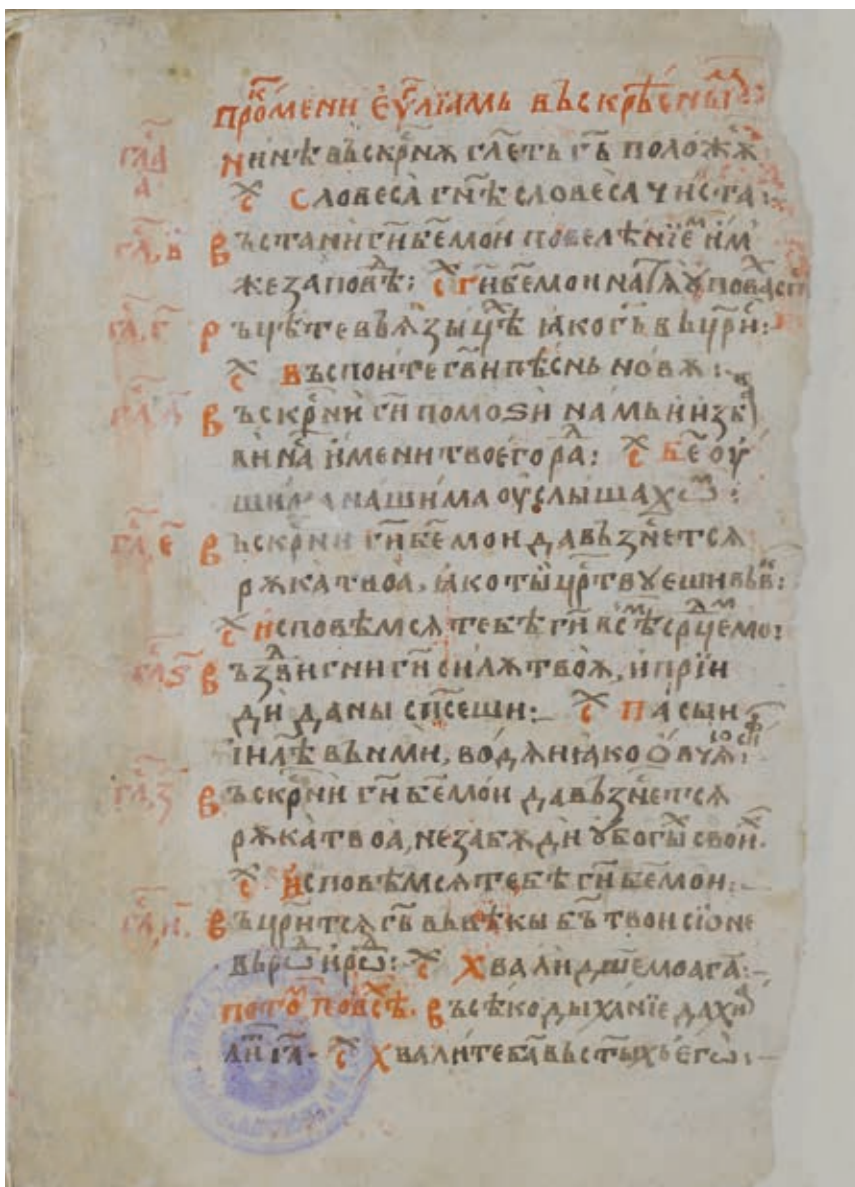 прокⷨмени еѵⷢ҇лїамь въскрⷭ҇ѣсныⷨ:
гла҃ а҃ Нн҃нѣ въскрⷭ҇нѫ гл҃еть гь҃ положѫ
сⷯ Словеса гн҃ѣ словеса чиста:
гла҃, в҃ Въстани ги҃ бе҃ мои повелѣнїеⷨ им
же заповѣⷣ: сⷯ Ги҃ бе҃ мои на тѧ ѹповаⷯ
гла҃, г҃ Рьцѣте вь ѧзыцѣⷯ ꙗко гь҃ вьцрⷭ҇и:
сⷯ Въспоите гв҃и пѣснь новѫ:
гла҃, д҃ Въскрⷭ҇ни ги҃ помоѕи намь и изб
ви наⷭ имени твоего раⷣ: сⷯ Бе҃ оу
шима нашима оуслышахѡⷨ:
гла҃, е҃ Въскрⷭ҇ни ги҃ бе҃ мои да възнⷭ҇етсѧ
рѫка твоа, ꙗко ты црⷭ҇твꙋеши вь вⷦ:
сⷯ Исповѣмсѧ тебѣ ги҃ всѣⷨ срⷣцемⷨ мо:
гла҃, ѕ҃ Въздвⷣигни ги҃ силѫ твоѫ, и прїи
ди да ны сп҃сеши: сⷯ Пасыи
їил҃ѣ вънми, водѧи ꙗко ѻвчѧ їѡсⷴи:
гла҃, з҃ Въскрⷭ҇ни ги҃ бе҃ мои да възнⷭ҇етсѧ
рѫка твоа, не забѫди ꙋбогыⷯ своиⷯ.
сⷯ Исповѣмсѧ тебѣ ги҃ бе҃ мои:
гла҃, и҃. Въцрⷭ҇итсѧ гь҃ вь вѣкы бь҃ твои сїоне
вь рѡⷣ и рѡⷣ: сⷯ Хвали дш҃е моа га҃:
потоⷨ повсеⷯ. Въсѣко дыханїе да хⷡ
алиⷮ га҃. сⷯ Хвалите ба҃ вь ст҃ыхь его: